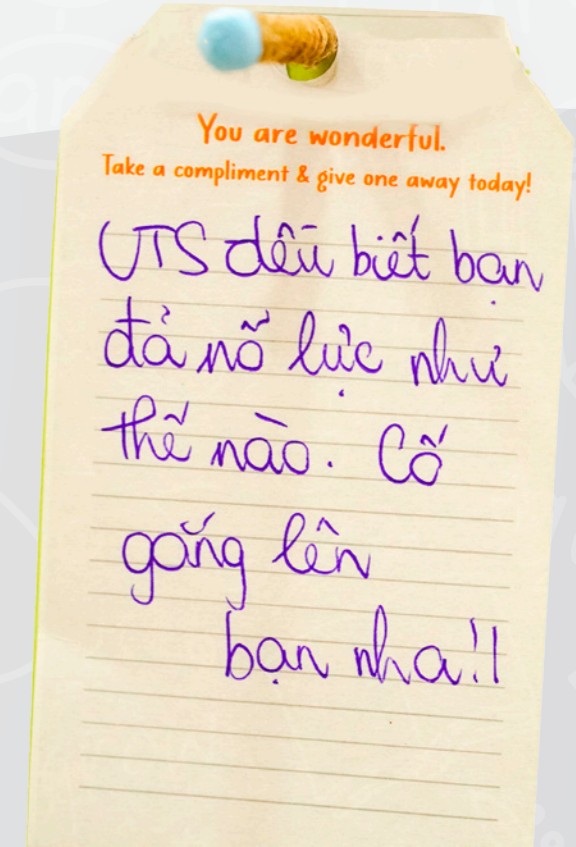 You are wonderful.
Take a compliment & give one away today!
UTS đều biết bạn
đã nỗ lực như
thế nào. Cố
gắng lên
bạn nha!!